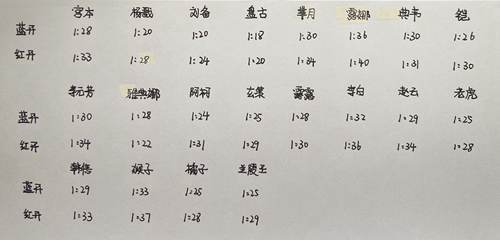 宫本 杨戬 刘备 盘古 芈月 露娜 典韦 铠
蓝开 1:28 1:20 1:20 1:18 1:30 1:36 1:30 1:26
红开 1:33 1:28 1:24 1:20 1:34 1:40 1:31 1:30
李元芳 雅典娜 阿轲 玄策 露露 李白 赵云 老虎
蓝开 1:30 1:28 1:24 1:25 1:28 1:32 1:29 1:25
红开 1:34 1:22 1:31 1:29 1:30 1:36 1:34 1:28
韩信 猴子 橘子 兰陵王
蓝开 1:29 1:33 1:25 1:25
红开 1:33 1:37 1:28 1:29